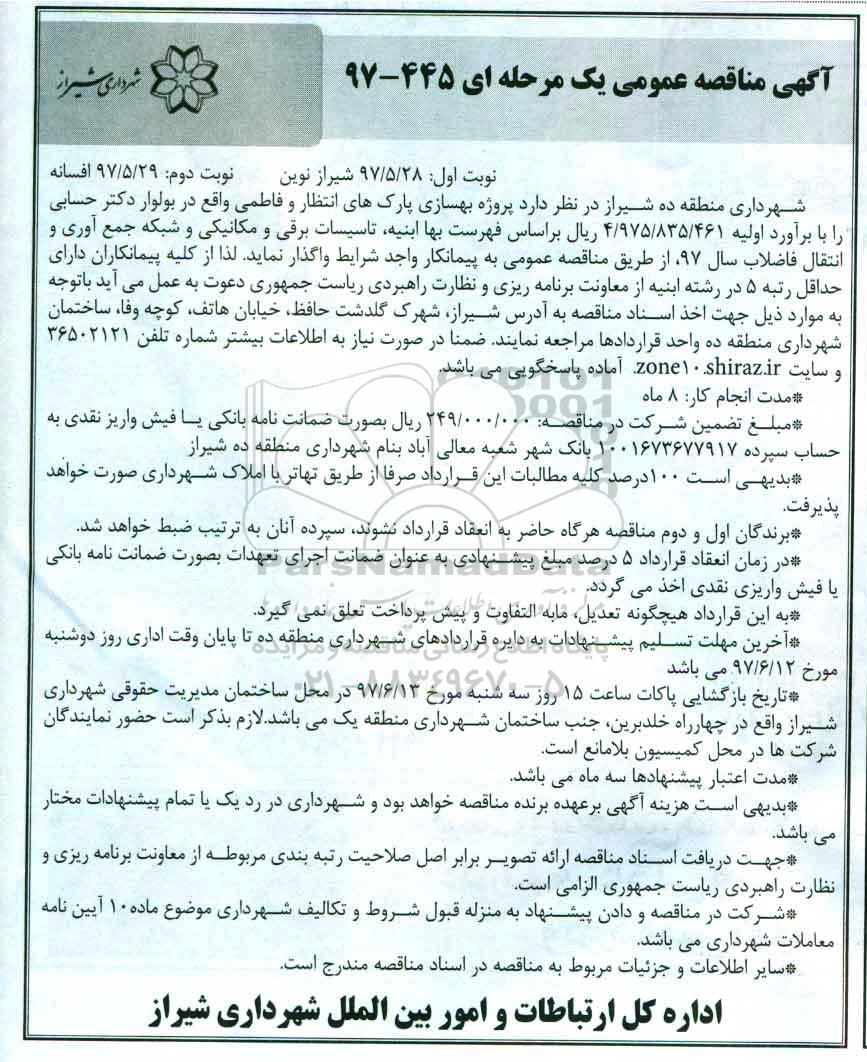 آگهی مناقصه عمومی یک مرحله ای ۴۴۵-۹۷
شهرداری شیراز
نوبت اول: ۹۷/۵/۲۸ شیراز نوین نوبت دوم: ۹۷/۵/۲۹ افسانه
شهرداری منطقه ده شیراز در نظر دارد پروژه بهسازی پارک های انتظار و فاطمی واقع در بولوار دکتر حسابی
را با برآورد اولیه ۴/۹۷۵/۸۳۵/۴۶۱ ریال براساس فهرست بها ابنیه، تاسیسات برقی و مکانیکی و شبکه جمع آوری و
انتقال فاضلاب سال ۹۷، از طریق مناقصه عمومی به پیمانکار واجد شرایط واگذار نماید. لذا از کلیه پیمانکاران دارای
حداقل رتبه ۵ در رشته ابنیه از معاونت برنامه ریزی و نظارت راهبردی ریاست جمهوری دعوت به عمل می آید باتوجه
به موارد ذیل جهت اخذ اسناد مناقصه به آدرس شیراز، شهرک گلدشت حافظ، خیابان هاتف، کوچه وفا، ساختمان
شهرداری منطقه ده واحد قراردادها مراجعه نمایند. ضمنا در صورت نیاز به اطلاعات بیشتر شماره تلفن ۳۶۵۰۲۱۲۱
و سایت zone۱۰.shiraz.ir. آماده پاسخگویی می باشد.
*مدت انجام کار: ۸ ماه
*مبلغ تضمین شرکت در مناقصه: ۲۴۹/۰۰۰/۰۰۰ ریال بصورت ضمانت نامه بانکی یا فیش واریز نقدی به
حساب سپرده ۱۰۰۱۶۷۳۶۷۷۹۱۷ بانک شهر شعبه معالی آباد بنام شهرداری منطقه ده شیراز
*بدیهی است ۱۰۰درصد کلیه مطالبات این قرارداد صرفا از طریق تهاتر با املاک شهرداری صورت خواهد
پذیرفت.
*برندگان اول و دوم مناقصه هرگاه حاضر به انعقاد قرارداد نشوند، سپرده آنان به ترتیب ضبط خواهد شد.
*در زمان انعقاد قرارداد ۵ درصد مبلغ پیشنهادی به عنوان ضمانت اجرای تعهدات بصورت ضمانت نامه بانکی
یا فیش واریزی نقدی اخذ می گردد.
*به این قرارداد هیچگونه تعدیل، مابه التفاوت و پیش پرداخت تعلق نمی گیرد.
*آخرین مهلت تسلیم پیشنهادات به دایره قراردادهای شهرداری منطقه ده تا پایان وقت اداری روز دوشنبه
مورخ ۹۷/۶/۱۲ می باشد
*تاریخ بازگشایی پاکات ساعت ۱۵ روز سه شنبه مورخ ۹۷/۶/۱۳ در محل ساختمان مدیریت حقوقی شهرداری
شیراز واقع در چهارراه خلدبرین، جنب ساختمان شهرداری منطقه یک می باشد.لازم بذکر است حضور نمایندگان
شرکت ها در محل کمیسیون بلامانع است.
*مدت اعتبار پیشنهادها سه ماه می باشد.
*بدیهی است هزینه آگهی برعهده برنده مناقصه خواهد بود و شهرداری در رد یک یا تمام پیشنهادات مختار
می باشد.
*جهت دریافت اسناد مناقصه ارائه تصویر برابر اصل صلاحیت رتبه بندی مربوطه از معاونت برنامه ریزی و
نظارت راهبردی ریاست جمهوری الزامی است.
*شرکت در مناقصه و دادن پیشنهاد به منزله قبول شروط و تکالیف شهرداری موضوع ماده۱۰ آیین نامه
معاملات شهرداری می باشد.
*سایر اطلاعات و جزئیات مربوط به مناقصه در اسناد مناقصه مندرج است.
اداره کل ارتباطات و امور بین الملل شهرداری شیراز
ParsNamadData
پایگاه اطلاع رسانی مناقصه و مزایده
۰۲۱-۸۸۳۴۹۶۷۰-۵